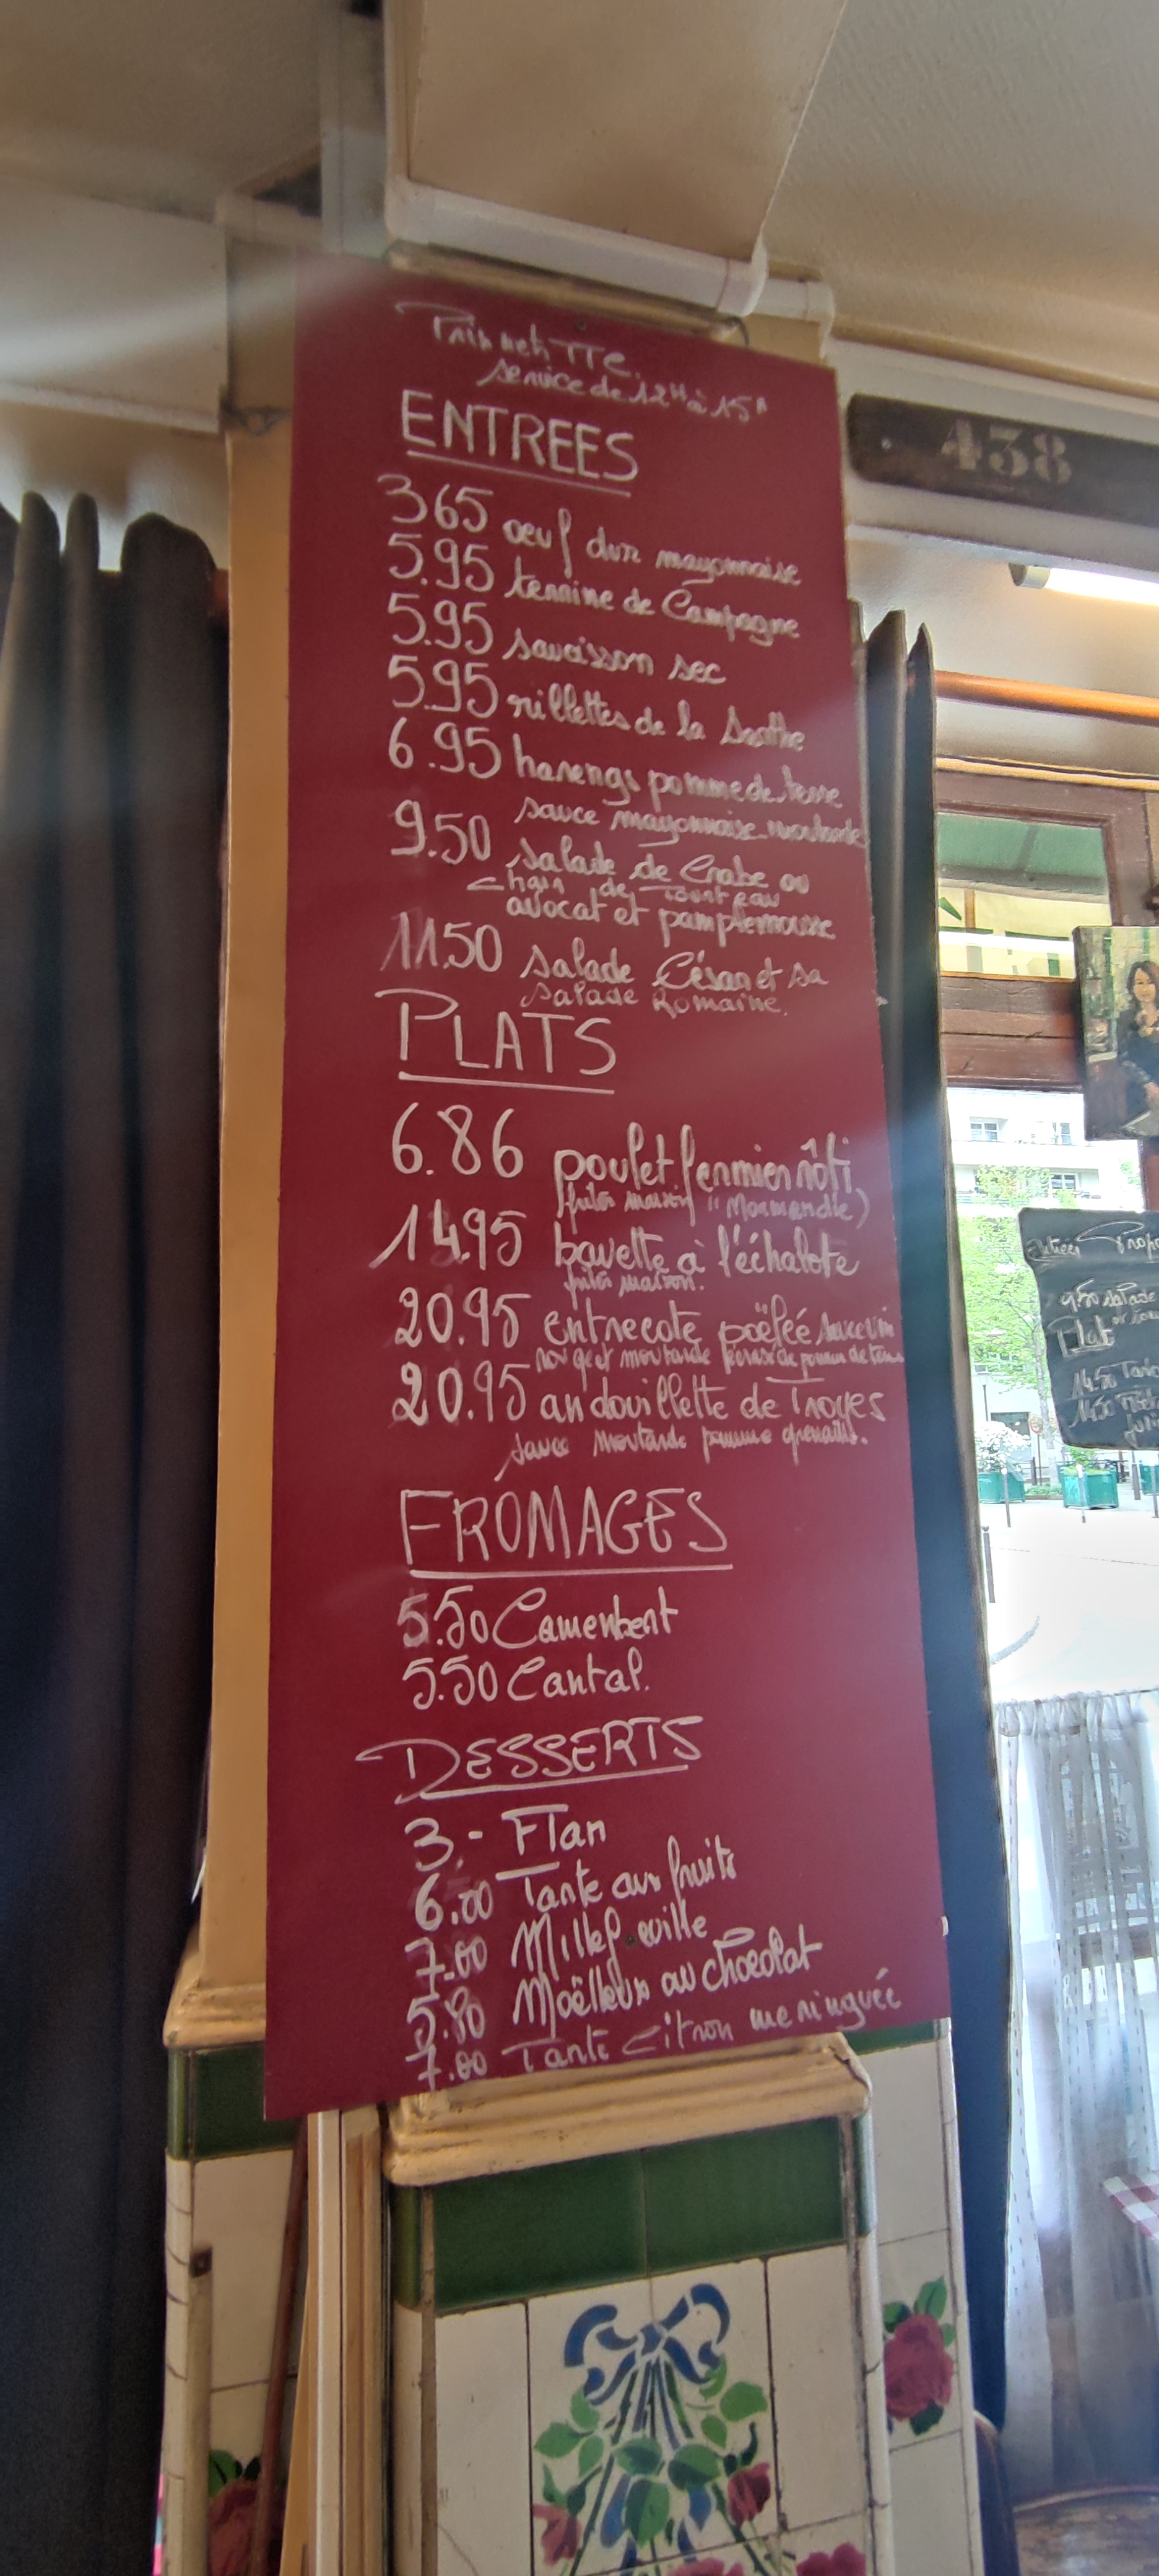 Prix nets TTC.
service de 12H à 15H
ENTREES
365 oeuf dur mayonnaise
5.95 terrine de Campagne
5.95 saucisson sec
5.95 rillettes de la Sarthe
6.95 harengs pomme de terre
sauce mayonnaise moutarde
9.50 salade de Crabe ou
chair de Tourteau
avocat et pamplemousse
11.50 salade César et sa
salade Romaine.
PLATS
6.86 poulet fermier rôti
frites maison "Normandie)
14.95 bavette à l'échalote
frites maison.
20.95 entrecote poëlée sauce vin
rouge et moutarde écrasé de pomme de terre
20.95 andouillette de Troyes
sauce moutarde pomme grenaille.
FROMAGES
5.50 Camenbert
5.50 Cantal.
DESSERTS
3.- Flan
6.00 Tarte aux fruits
7.00 Millefeuille
5.80 Moëlleux au chocolat
7.00 Tarte citron meringuée
438
9.50 salade
Plat
14.50
14.50